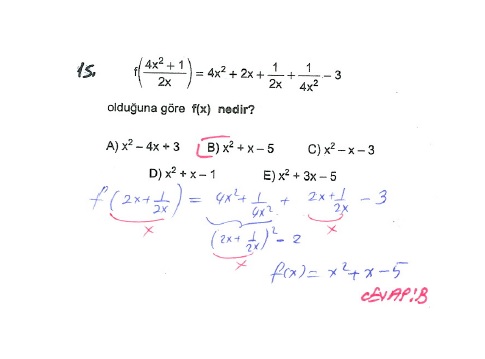 15. f((4x² + 1)/(2x)) = 4x² + 2x + 1/(2x) + 1/(4x²) - 3
olduğuna göre f(x) nedir?
A) x² - 4x + 3 B) x² + x - 5 C) x² - x - 3
D) x² + x - 1 E) x² + 3x - 5
f(2x + 1/(2x)) = 4x² + 1/(4x²) + 2x + 1/(2x) - 3
x x
(2x + 1/(2x))² - 2
x
f(x) = x² + x - 5
CEVAP: B